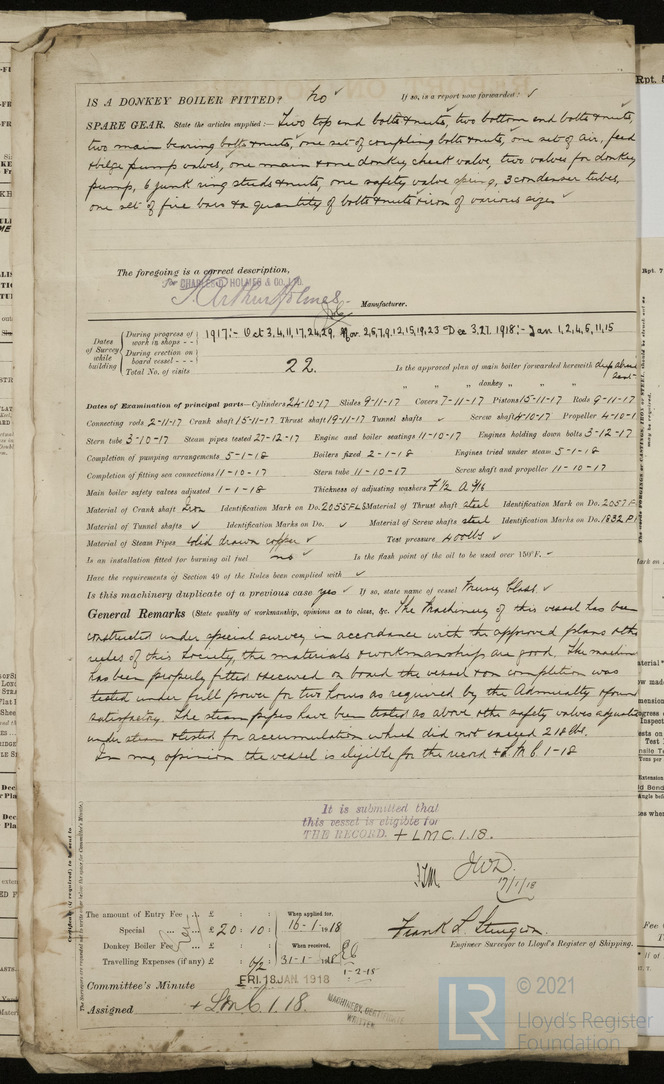 IS A DONKEY BOILER FITTED? No ✓ If so, is a report now forwarded? ✓
SPARE GEAR. State the articles supplied:— Two top end bolts & nuts, two bottom end bolts & nuts,
two main bearing bolts & nuts, one set of coupling bolts & nuts, one set of air, feed
& bilge pump valves, one main & one donkey check valve, two valves for donkey
pump, 6 junk ring studs & nuts, one safety valve spring, 3 condenser tubes,
one set of fire bars & a quantity of bolts & nuts & iron of various sizes ✓
The foregoing is a correct description,
For CHARLES D. HOLMES & CO. LTD.
Arthur Holmes Manufacturer.
Dates of Survey while building
During progress of work in shops - - 1917:- Oct 3, 4, 11, 17, 24, 29, Nov. 2, 6, 7, 9, 12, 15, 19, 23 Dec 3, 27. 1918:- Jan 1, 2, 4, 5, 11, 15
During erection on board vessel - - -
Total No. of visits 22. Is the approved plan of main boiler forwarded herewith
" " " donkey " " "
Dates of Examination of principal parts—Cylinders 24-10-17 Slides 9-11-17 Covers 7-11-17 Pistons 15-11-17 Rods 9-11-17
Connecting rods 2-11-17 Crank shaft 15-11-17 Thrust shaft 19-11-17 Tunnel shafts ✓ Screw shaft 4-10-17 Propeller 4-10-1
Stern tube 3-10-17 Steam pipes tested 27-12-17 Engine and boiler seatings 11-10-17 Engines holding down bolts 3-12-17
Completion of pumping arrangements 5-1-18 Boilers fixed 2-1-18 Engines tried under steam 5-1-18
Completion of fitting sea connections 11-10-17 Stern tube 11-10-17 Screw shaft and propeller 11-10-17
Main boiler safety valves adjusted 1-1-18 Thickness of adjusting washers
Material of Crank shaft Iron Identification Mark on Do. 2055FLS Material of Thrust shaft steel Identification Mark on Do. 2057 F
Material of Tunnel shafts ✓ Identification Marks on Do. ✓ Material of Screw shafts steel Identification Marks on Do. 1832
Material of Steam Pipes solid drawn copper ✓ Test pressure 400 lbs ✓
Is an installation fitted for burning oil fuel no ✓ Is the flash point of the oil to be used over 150°F. ✓
Have the requirements of Section 49 of the Rules been complied with ✓
Is this machinery duplicate of a previous case yes ✓ If so, state name of vessel Class. ✓
General Remarks (State quality of workmanship, opinions as to class, &c. The Machinery of this vessel has been
constructed under special survey in accordance with the approved plans & the
rules of this Society, the materials & workmanship are good. The machin
has been properly fitted & secured on board the vessel & on completion was
tested under full power for two hours as required by the Admiralty & found
satisfactory. The steam pipes have been tested as above & the safety valves adjusted
under steam & tested for accumulation which did not exceed 210 lbs.
In my opinion the vessel is eligible for the record + L.M.C 1-18
It is submitted that
this vessel is eligible for
THE RECORD. + LMC. 1. 18.
J.W.D.
17/1/18
The amount of Entry Fee ... £ : : When applied for,
Special ... £ 20 : 10 : 16-1-1918
Donkey Boiler Fee ... £ : : When received,
Travelling Expenses (if any) £ : : 31-1-1918
1-2-18
Frank L. Sturgeon.
Engineer Surveyor to Lloyd's Register of Shipping.
Committee's Minute FRI. 18 JAN. 1918
Assigned + LMC. 1. 18.
MACHINERY CERTIFICATE
WRITTEN
LR © 2021
Lloyd's Register
Foundation